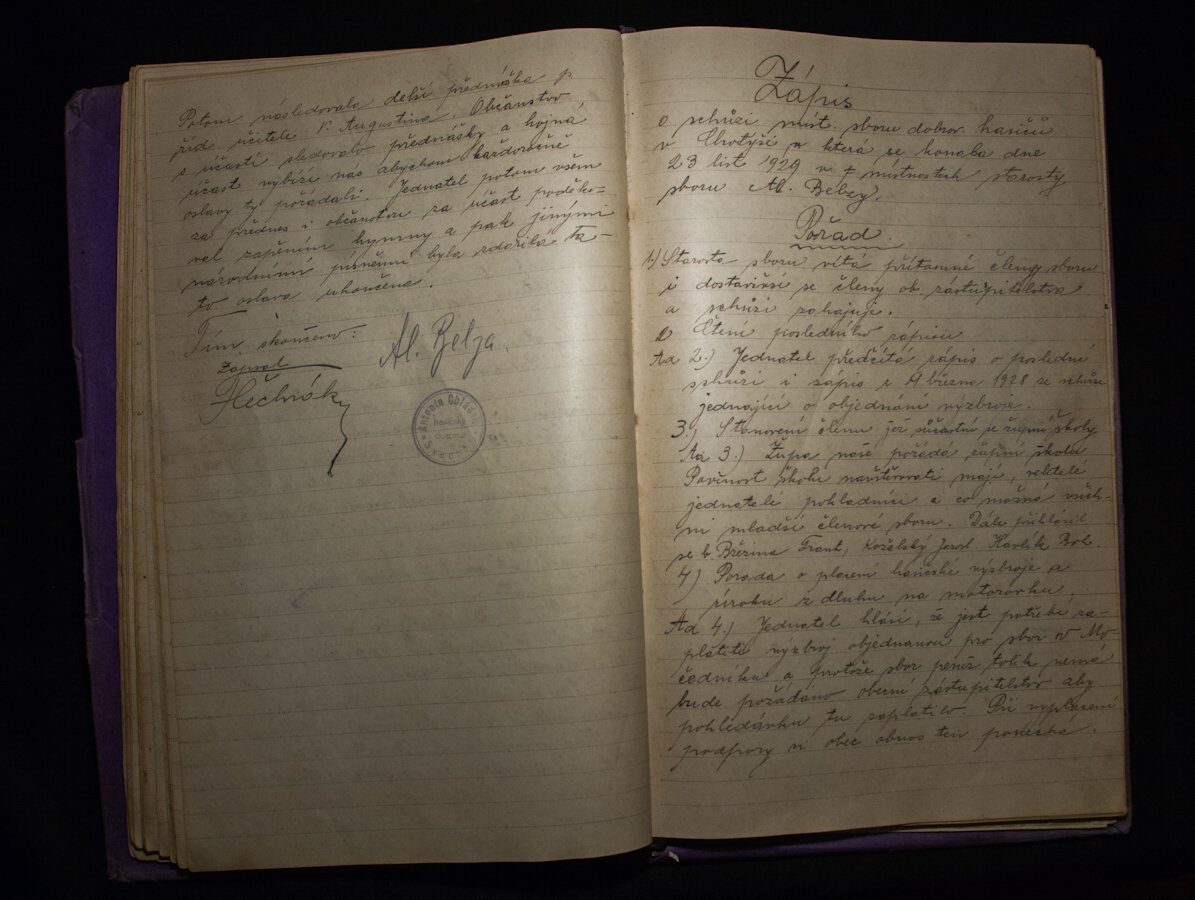 Potom následovala delší přednáška p.
říd. učitele V. Augustina. Občanstvo
s účastí sledovalo přednášky a hojná
účast vybízí nás abychom každoročně
oslavy ty pořádali. Jednatel potom všem
za přednes i občanstvu za účast poděko-
val zapěním hymny a pak jinými
národními písněmi byla zdařilá ta-
to oslava ukončena.
Tím skončeno:
Zapsal
Al. Belza.
Antonín
hasičský
Zápis
o schůzi míst. sboru dobrov. hasičů
v Chotýši která se konala dne
23 list 1929 v místnostech starosty
sboru Al. Belzy.
Pořad
1.) Starosta sboru vítá přítomné členy sboru
i dostavivší se členy ob. zástupitelstva
a schůzi zahajuje.
Čtení posledního zápisu
Ad 2.) Jednatel předčítá zápis o poslední
schůzi i zápis z března 1928 ze schůze
jednající o objednání výzbroje.
3.) Stanovení členů jez súčastní se župní školy
Ad 3.) Župa naše pořádá župní školu
Povinnost školu navštěvovati mají, velitelé
jednatelé pokladníci a co možná všich-
ni mladší členové sboru. Dále přihlásil
se b. Březina Frant, Kozelský Jarosl. Havlík Boh.
4) Porada o placení hasičské výzbroje a
úroku z dluhu na motorovku.
Ad 4.) Jednatel hlásí, že jest potřebí za-
platiti výzbroj objednanou pro sbor v Mo-
čedníku a protože sbor peněz tolik nemá
bude požádáno obecní zástupitelstvo aby
pohledávku tu zaplatilo. Při vyplacení
podpory si obec obnos ten ponechá.